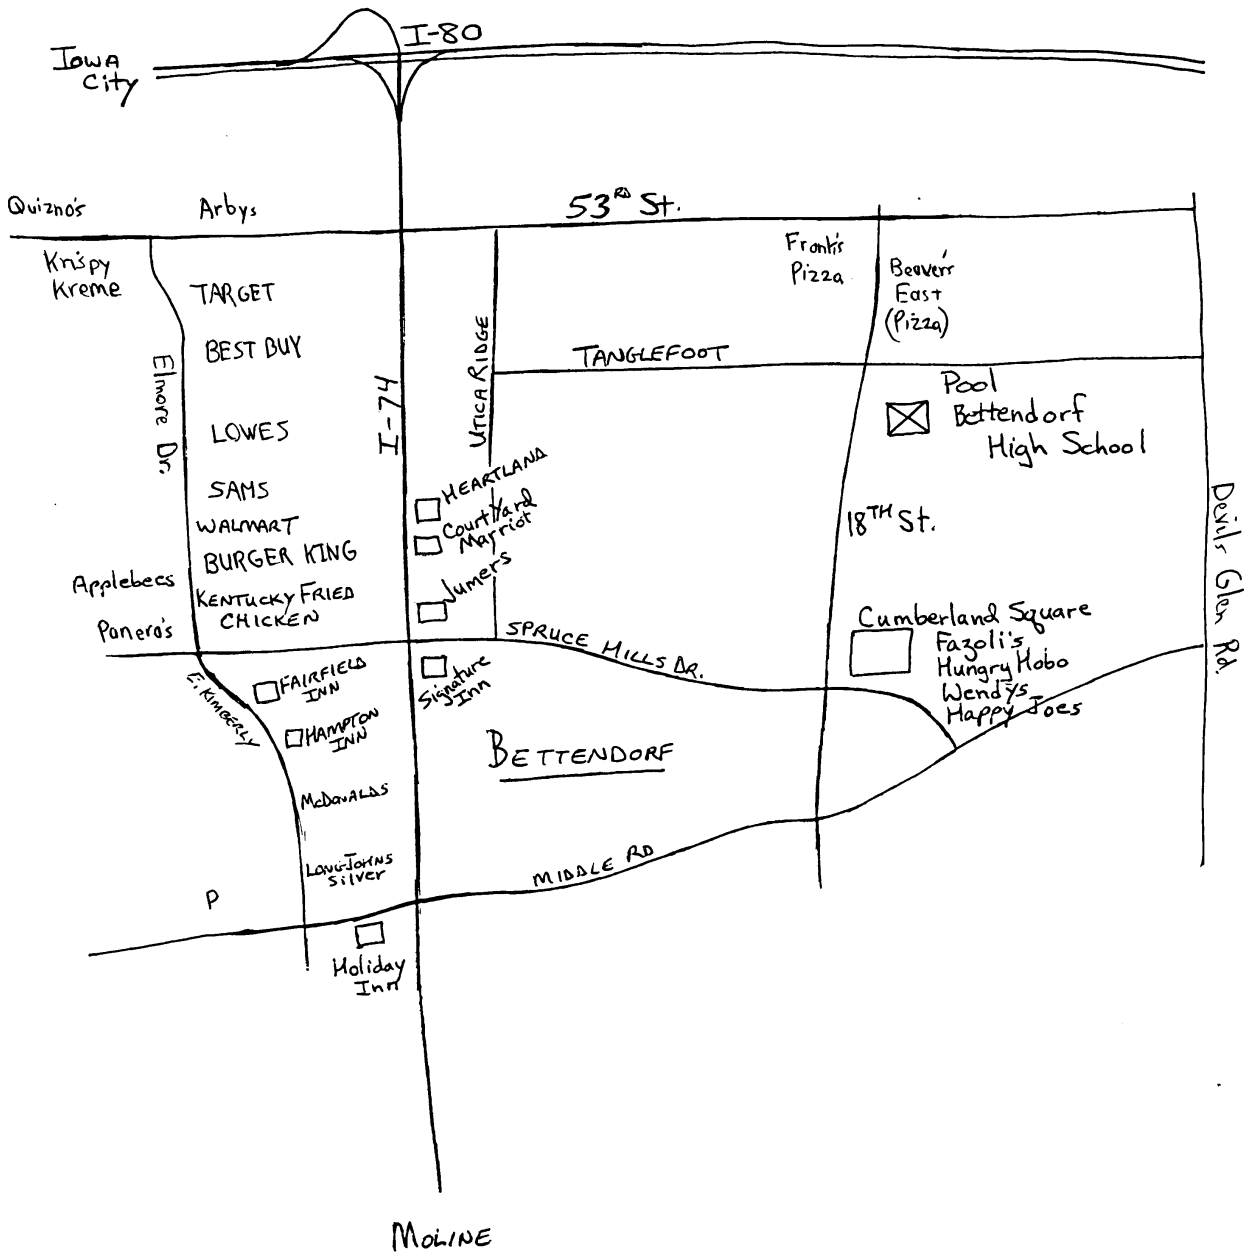 I-80
Iowa
City
Quizno's
Arbys
53RD St.
Krispy
Kreme
TARGET
BEST BUY
Elmore Dr.
LOWES
SAMS
WALMART
BURGER KING
Applebees
KENTUCKY FRIED
CHICKEN
Panera's
I-74
UTICA RIDGE
TANGLEFOOT
Front's
Pizza
Beaver's
East
(Pizza)
Pool
Bettendorf
High School
HEARTLAND
CourtYard
Marriot
Jumers
18TH St.
Devils Glen Rd.
Cumberland Square
Fazoli's
Hungry Hobo
Wendys
Happy Joes
SPRUCE HILLS DR.
E. KIMBERLY
FAIRFIELD
INN
Signature
Inn
HAMPTON
INN
BETTENDORF
McDONALDS
LONG JOHNS
Silver
MIDDLE RD
P
Holiday
Inn
MOLINE